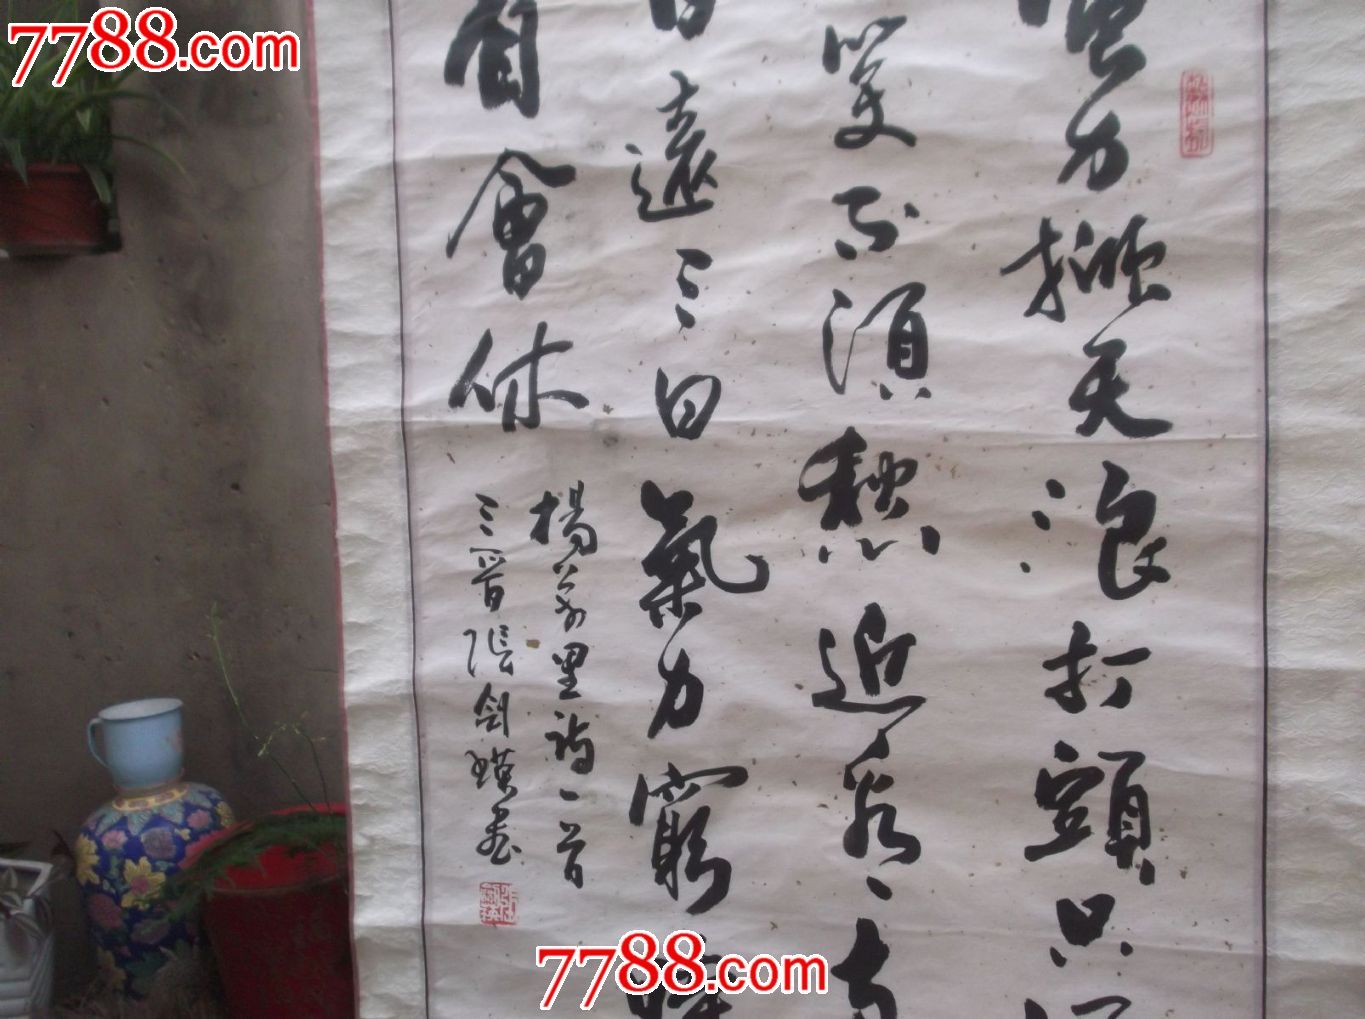 7788.com
風力掀天浪打頭只須
笑不須愁近看
日遠三日氣力窮時
自會休
楊萬里詩一首
三晉張劍瑛書
7788.com